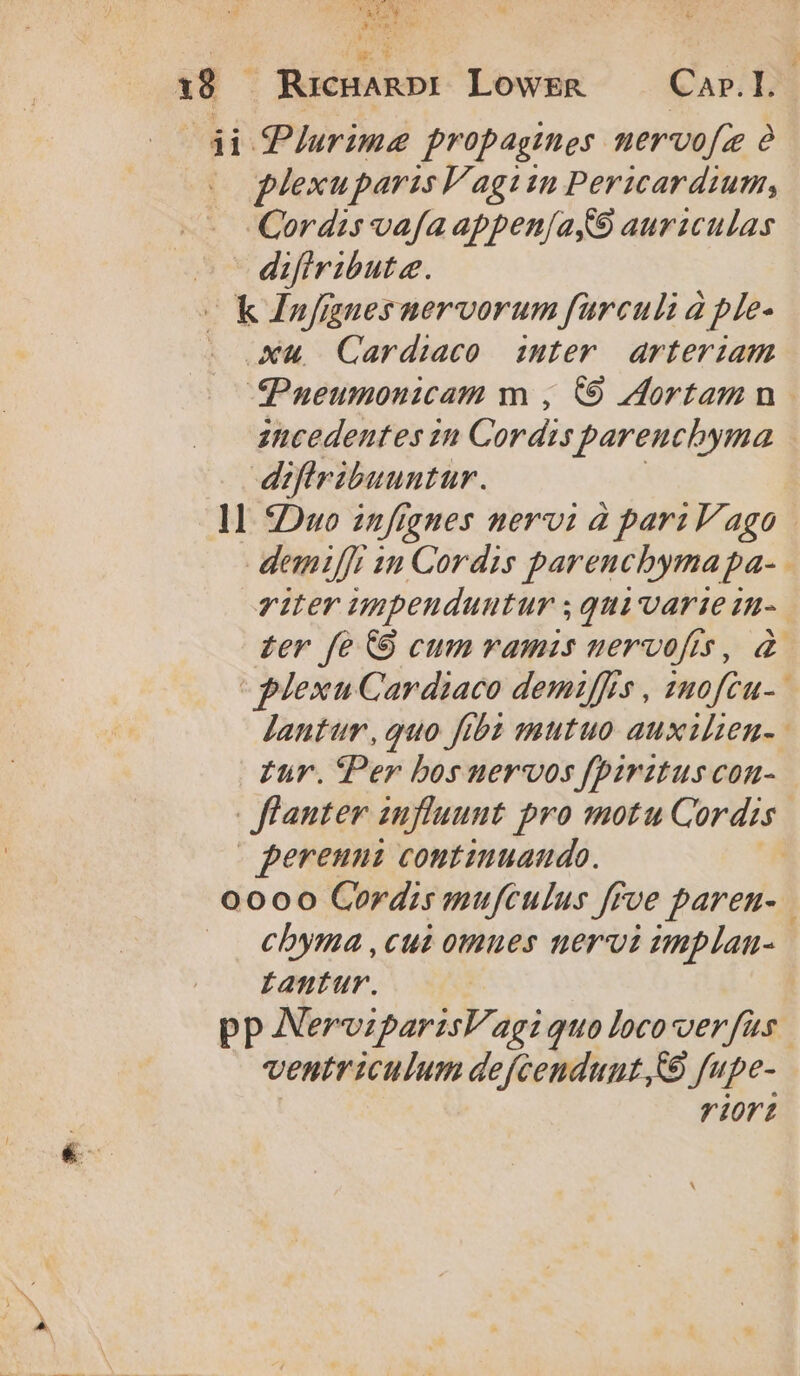 18 RICHARDI LOWER CAP. I.
ii Plurimæ propagines nervoſæ è
plexu paris Vagi in Pericardium,
Cordis vaſa appenſa, & auriculas
diſtributæ.
k Inſignes nervorum ſurculi à ple-
xu Cardiaco inter arteriam
Pneumonicam m, & Aortam n
incedentes in Cordis parenchyma
diſtribuuntur.
ll Duo inſignes nervi à pari Vago
demiſſi in Cordis parenchyma pa-
riter impenduntur; qui varie in-
ter ſe & cum ramis nervoſis, à
plexu Cardiaco demiſſis, inoſcu-
lantur, quo ſibi mutuo auxilien-
tur. Per hos nervos ſpiritus con-
ſtanter influunt pro motu Cordis
perenni continuando.
oooo Cordis muſculus ſive paren-
chyma, cui omnes nervi implan-
tantur.
pp Nervi paris Vagi quo loco verſus
ventriculum deſcendunt, & ſupe-
riori